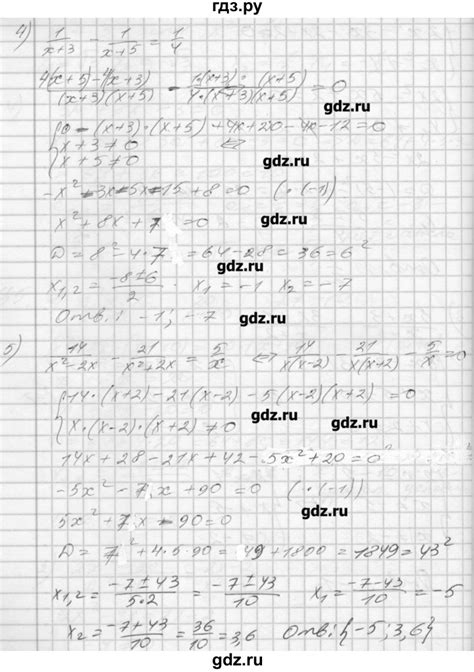 гдз.ру
4) 1/(x+3) - 1/(x+5) = 1/4
(4(x+5)-4(x+3))/((x+3)(x+5)) - (1·(x+3)·(x+5))/(4·(x+3)(x+5)) = 0
gdz.ru
{0 - (x+3)·(x+5) + 4x+20-4x-12=0
x+3≠0
x+5≠0 ⇔
gdz.ru
-x² - 3x - 5x - 15 + 8 = 0 (·(-1))
gdz.ru
x² + 8x + 7 = 0
gdz.ru
D = 8² - 4·7 = 64 - 28 = 36 = 6²
gdz.ru
x₁,₂ = (-8±6)/2 x₁ = -1 x₂ = -7
gdz.ru
Отв.: -1; -7
gdz.ru
5) 14/(x²-2x) - 21/(x²+2x) = 5/x ⇔ 14/(x(x-2)) - 21/(x(x+2)) - 5/x = 0
gdz.ru
{14·(x+2)-21(x-2)-5(x-2)(x+2) = 0
x·(x-2)·(x+2) ≠ 0
gdz.ru
14x + 28 - 21x + 42 - 5x² + 20 = 0
gdz.ru
-5x² - 7x + 90 = 0 (·(-1))
gdz.ru
5x² + 7x - 90 = 0
gdz.ru
D = 7² + 4·5·90 = 49 + 1800 = 1849 = 43²
gdz.ru
x₁,₂ = (-7±43)/(5·2) = (-7±43)/10 x₁ = (-7-43)/10 = -5
gdz.ru
x₂ = (-7+43)/10 = 36/10 = 3,6 Отв: {-5; 3,6}
gdz.ru